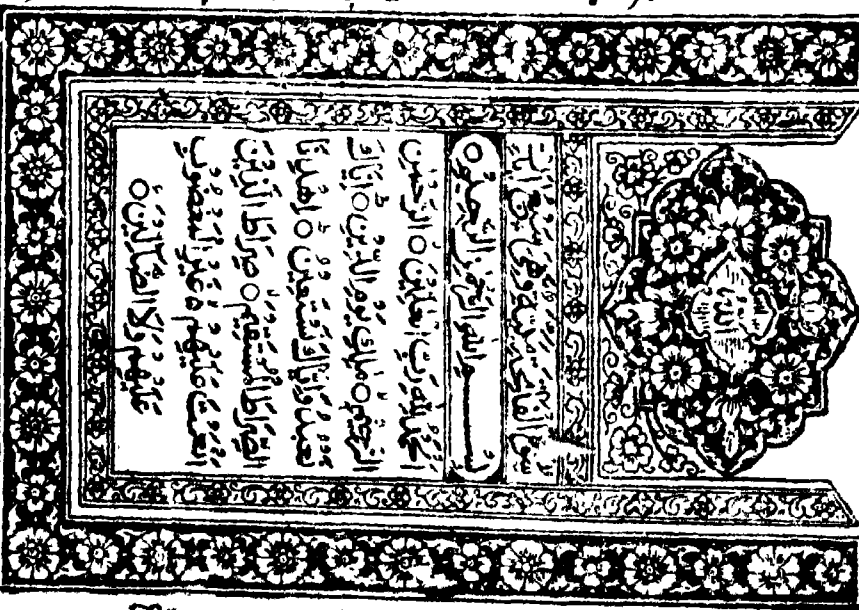 سورة الفاتحة مكية وهي سبع آيات
بِسْمِ اللهِ الرَّحْمٰنِ الرَّحِيْمِ ○
اَلْحَمْدُ لِلّٰهِ رَبِّ الْعٰلَمِيْنَ ○ الرَّحْمٰنِ
الرَّحِيْمِ ○ مٰلِكِ يَوْمِ الدِّيْنِ ○ اِيَّاكَ
نَعْبُدُ وَاِيَّاكَ نَسْتَعِيْنُ ○ اِهْدِنَا
الصِّرَاطَ الْمُسْتَقِيْمَ ○ صِرَاطَ الَّذِيْنَ
اَنْعَمْتَ عَلَيْهِمْ ○ غَيْرِ الْمَغْضُوْبِ
عَلَيْهِمْ وَلَا الضَّآلِّيْنَ ○